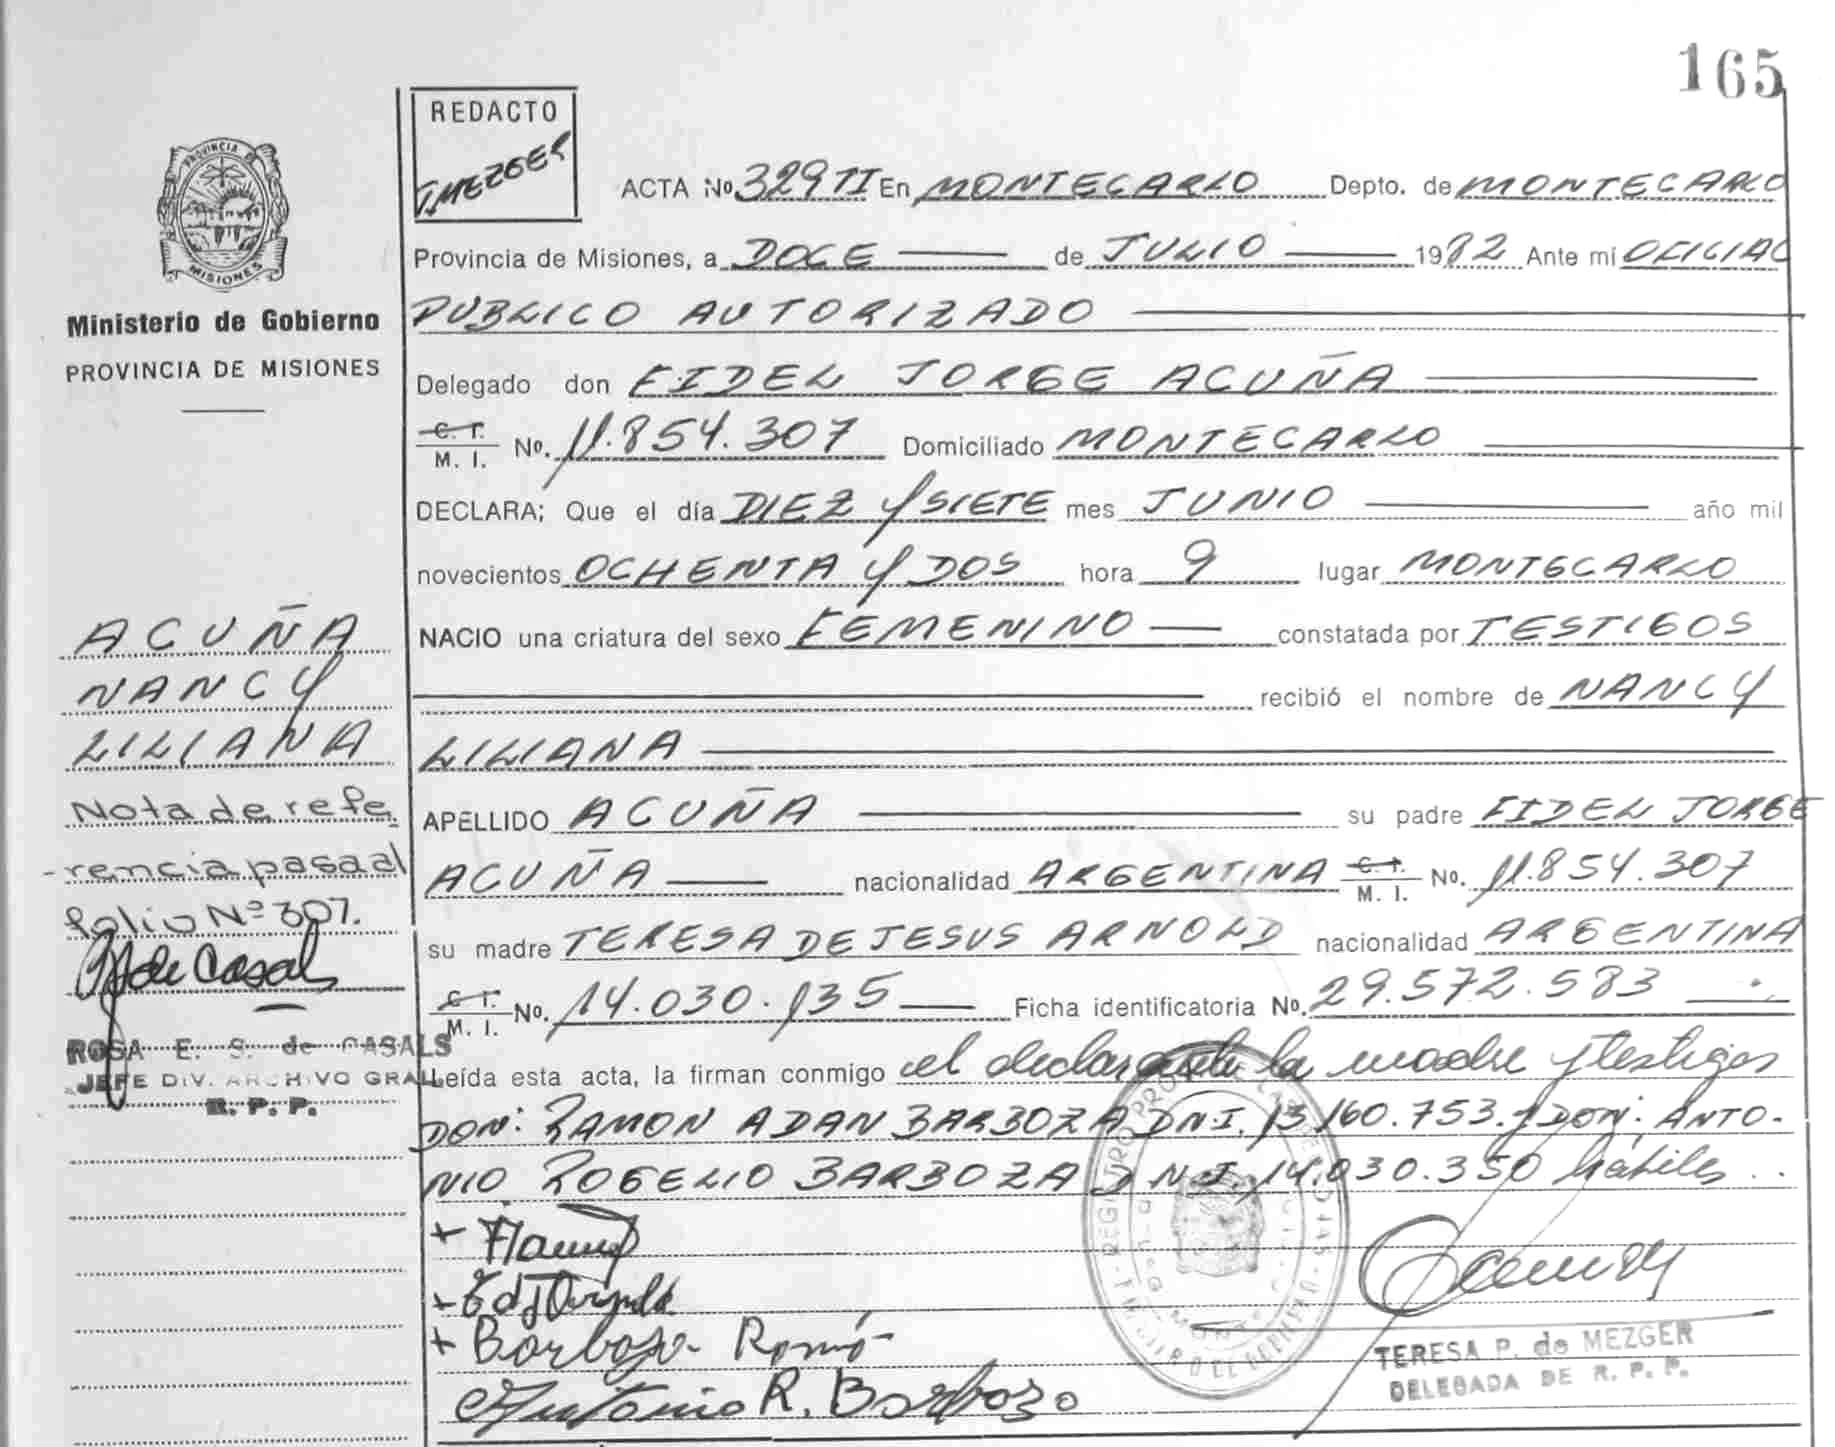 165
REDACTO
T.MEZGER
PROVINCIA DE
MISIONES
Ministerio de Gobierno
PROVINCIA DE MISIONES
ACTA No 329 TI En MONTECARLO Depto. de MONTECARLO
Provincia de Misiones, a DOCE de JULIO 1982 Ante mi OFICIAL
PUBLICO AUTORIZADO
Delegado don FIDEL JORGE ACUÑA
C. I. M. I. No. 11.854.307 Domiciliado MONTECARLO
DECLARA; Que el día DIEZ Y SIETE mes JUNIO año mil
novecientos OCHENTA Y DOS hora 9 lugar MONTECARLO
NACIO una criatura del sexo FEMENINO constatada por TESTIGOS
recibió el nombre de NANCY
LILIANA
APELLIDO ACUÑA su padre FIDEL JORGE
ACUÑA nacionalidad ARGENTINA C. I. M. I. No. 11.854.307
su madre TERESA DE JESUS ARNOLD nacionalidad ARGENTINA
C. I. M. I. No. 14.030.135 Ficha identificatoria No. 29.572.583
Leída esta acta, la firman conmigo el declarante la madre y testigos
DON: RAMON ADAN BARBOZA DNI. 13.160.753. y DON: ANTO-
NIO ROGELIO BARBOZA DNI. 14.030.350 hábiles ..
Barboza Ramó
Antonio R. Barbozo
TERESA P. de MEZGER
DELEGADA DE R. P. P.
ACUÑA
NANCY
LILIANA
Nota de refe
-rencia pasa al
folio Nº 307.
de Casals
ROSA E. S. de CASALS
JEFE DIV. ARCHIVO GRAL
R. P. P.